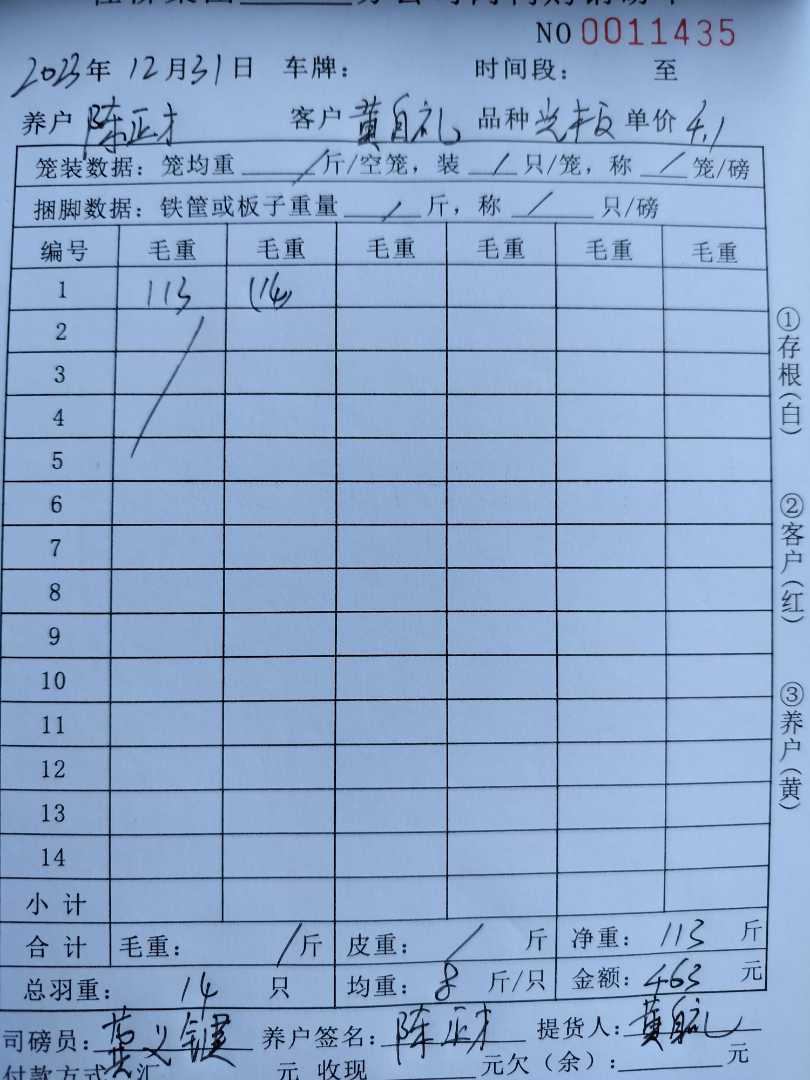 NO 0011435
2023年 12月31日 车牌： 时间段： 至
养户 陈正才 客户 黄自礼 品种 光板 单价 4.1
笼装数据：笼均重 / 斤/空笼，装 / 只/笼，称 / 笼/磅
捆脚数据：铁筐或板子重量 / 斤，称 / 只/磅
编号 毛重 毛重 毛重 毛重 毛重 毛重
1 113 (14)
2
3
4
5
6
7
8
9
10
11
12
13
14
小计
合计 毛重： / 斤 皮重： / 斤 净重： 113 斤
总羽重： 14 只 均重： 8 斤/只 金额： 463 元
司磅员： 养户签名： 陈正才 提货人： 黄自礼
付款方式 汇 元 收现 元欠（余）： 元
①存根（白）
②客户（红）
③养户（黄）